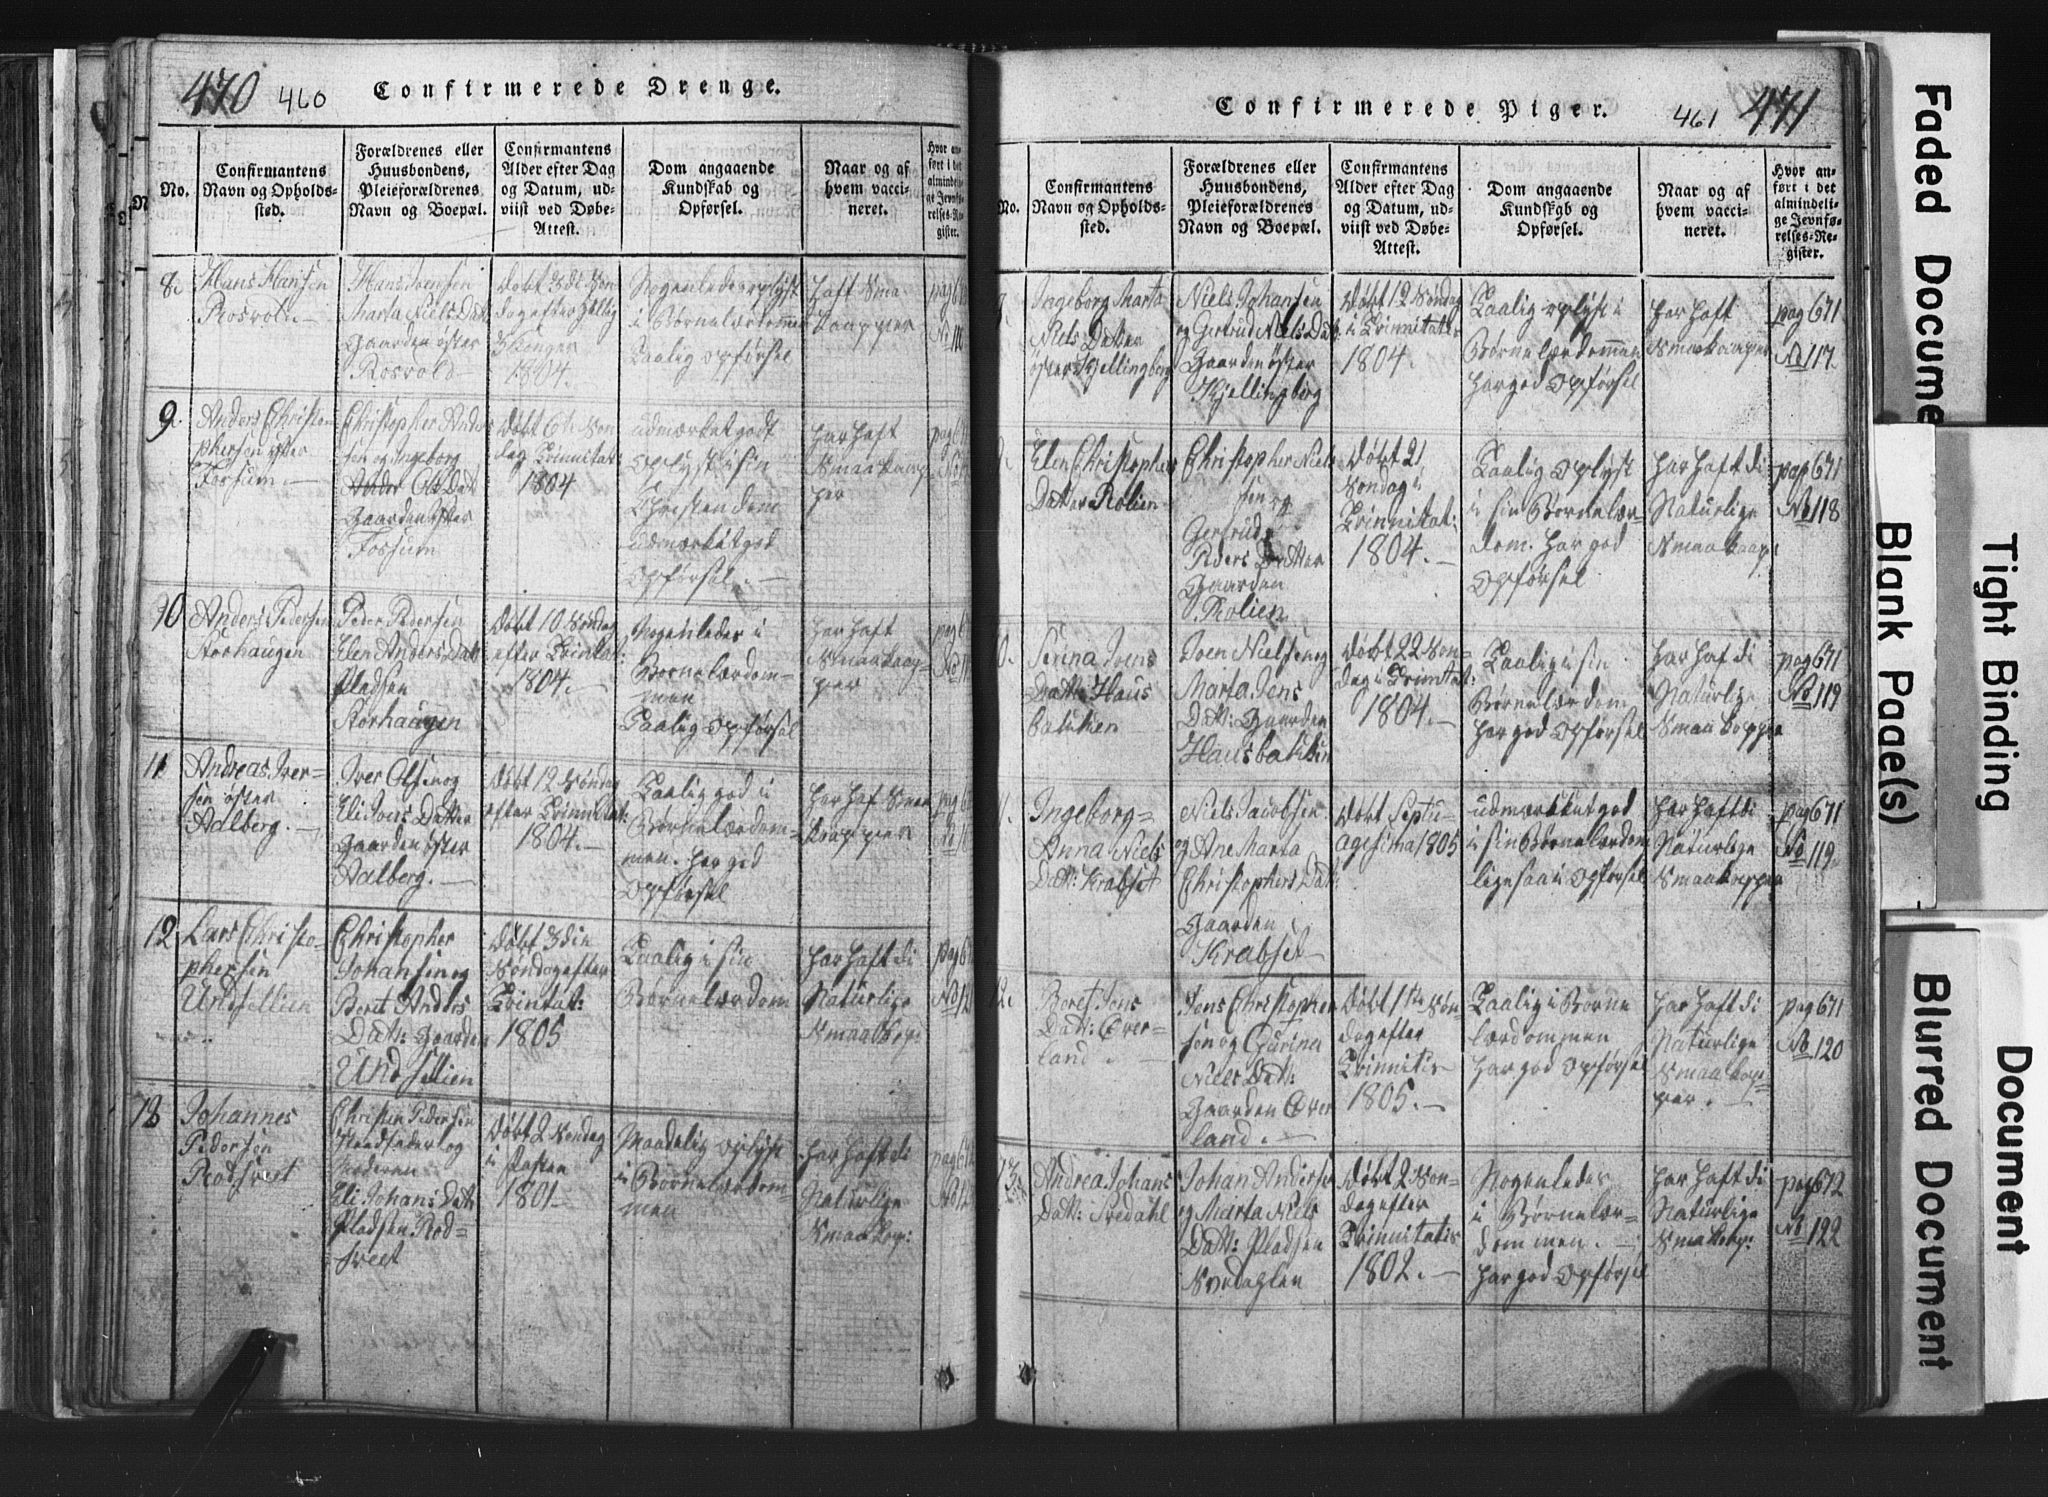 470 460 Confirmerede Drenge.
No.
Confirmantens
Navn og Opholds-
sted.
Forældrenes eller
Huusbondens,
Pleieforældrenes
Navn og Boepæl.
Confirmantens
Alder efter Dag
og Datum, ud-
viist ved Døbe-
Attest.
Dom angaaende
Kundskab og
Opførsel.
Naar og af
hvem vacci-
neret.
Hvor an-
ført i det
almindeli-
ge Jevnfø-
relses-Re-
gister.
8.
Hans Hansen
Rosvold
Hans Iversen
Marta Niels Dat
Gaarden øster
Rosvold
Døbt 3de Søn
dag efter Hellig
3 Konger
1804.
Nogenledes oplyst
i Børnelærdommen
Taalig opførsel
haft Sma
kaapper
pag 6
No 11
9.
Anders Christo
phersen øster
Fossum.
Christopher Anders
sen og Ingeborg
Ols Dat
Gaarden øster
Fossum
Døbt 6te Søn
dag Trinnitat:
1804
udmærket godt
oplyst i sin
Christendom
udmærket god
opførsel.
har haft
Smaakaap
per
pag 6
10
Anders Pedersen
Storhaugen
Peder Pedersen
Elen Anders Dat
Pladsen
Storhaugen
Døbt 10 Søndag
efter Trintat:
1804.
Nogenledes i
Børnelærdom-
men
Taalig opførsel
har haft
Smaakaap-
per
pag 6
No 11
11
Andreas Iver-
sen øster
Aalberg.
Iver Olsen og
Eli Ivers Datter
Gaarden øster
Aalberg.
Døbt 12 Søndag
efter Trinnitat:
1804.
Taalig god i
Børnelærdom-
men. har god
opførsel
har haf Smaa
kopper
pag 6
No 1
12
Lars Christo-
phersen
Undsellien
Christopher
Johansen og
Beret Anders
Datt: Gaarden
Undsellien
Døbt 3den
Søndag efter
Trintat:
1805
Taalig i sin
Børnelærdom
har haft di
Naturlige
Smaakop:
pag 6
No 12
13
Johannes
Pedersen
Rodsveet
Christen Pedersen
og
Moderen
Eli Johans Datt
Pladsen Rod-
sveet
Døbt 2 Søndag
i Fasten
1801
Maadelig oplyst
i Børnelærdom-
men
har haft di
Naturlige
Smaakop:
pag 67
No 12
Confirmerede Piger. 461 471
No.
Confirmantens
Navn og Opholds-
sted.
Forældrenes eller
Huusbondens,
Pleieforældrenes
Navn og Boepæl.
Confirmantens
Alder efter Dag
og Datum, ud-
viist ved Døbe-
Attest.
Dom angaaende
Kundskqb og
Opførsel.
Naar og af
hvem vacci-
neret.
Hvor an-
ført i det
almindeli-
ge Jevnfø-
relses-Re-
gister.
Ingeborg Marta
Niels Datter
øster Kjellingberg
Niels Johansen
og Gertrud Niels Datt
Gaarden øster
Kjellingberg
Døbt 12 Søndag
i Trinnitates
1804.
Taalig oplyst i
Børnelærdommen
har god opførsel
har haft
Smaakaaper
pag 671
No 117.
Elen Christophers
Datter Kolien
Christopher Niel
sen og
Gertrud
Peders Datter
Gaarden
Kolien
Døbt 21
Søndag i
Trinnitat:
1804.
Taalig oplyst
i sin Børnelær-
dom. har god
opførsel
har haft di
Naturlige
Smaakaap:
pag 671
No 118
0.
Ivens
Datt: Haus
bakken
Iven Nielsen og
Marta Jens
Datt: Gaarden
Hausbakken
Døbt 22 Søn-
dag i Trintat:
1804.
Taalig i sin
Børnelærdom
har god opførsel
har haf di
Naturlige
Smaakopper
pag 671
No 119
1.
Ingeborg-
Anna Niels
Datt: Krabset
Niels Jacobsen
og Ane Marta
Christophers Datt:
Gaarden
Krabset
Døbt Septu-
agesima 1805
udmærkket god
i sin Børnelærdom
ligesaa i opførsel
har haft di
Naturlige
Smaakopper
pag 671
No 119.
12.
Beret Jens
Datt: Over-
land.
Jens Christopher
sen og Gurina
Niels Datt:
Gaarden Over
land.
Døbt 1ste Søn
dag efter
Trinnitis
1805.
Taalig i Børne
lærdommen
har god opførsel
har haft di
Naturlige
Smaakop-
per.
pag 671
No 120
13
Andrea Johans
Datt: Svedahl
Johan Anders
og Marta Niels
Datt: Pladsen
Døbt 2 Søn-
dag efter
Trinnitatis
1802.
Nogenledes
i Børnelær-
dommen.
har god opførsel
har haft di
Naturlige
Smakop:
pag 672
No 122
Faded Docume
Tight Binding
Blank Page(s)
Blurred Document
Document